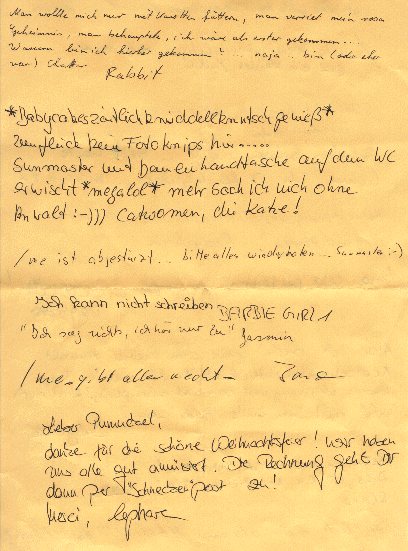 Man wollte mich nur mit Karotten füttern, man verriet mein
Geheimnis, man behauptete, ich wäre als erster gekommen...
Warum bin ich hierher gekommen? ... naja.. bin (oder eher
war) Chatter
Rabbit
zeugleich kein Fotoknips hier.....
Sunmaster mit Damenhandtasche auf dem WC
erwischt *megalol* mehr sach ich nich ohne
Anwalt :-))) Catwomen, die Katze!
/me ist abgestürzt... bitte alles wiederholen... Sunmaster :-)
Ich kann nicht schreiben BARBIE GIRL 1
"Ich sag nichts, ich hör nur zu" Jasmin
/me gibt allen recht-
Lieber Pumuckel,
danke für die schöne Weihnachtsfeier! Wir haben
uns alle gut amüsiert. Die Rechnung geht Dir
dann per "Schneckenpost" zu!
Merci,